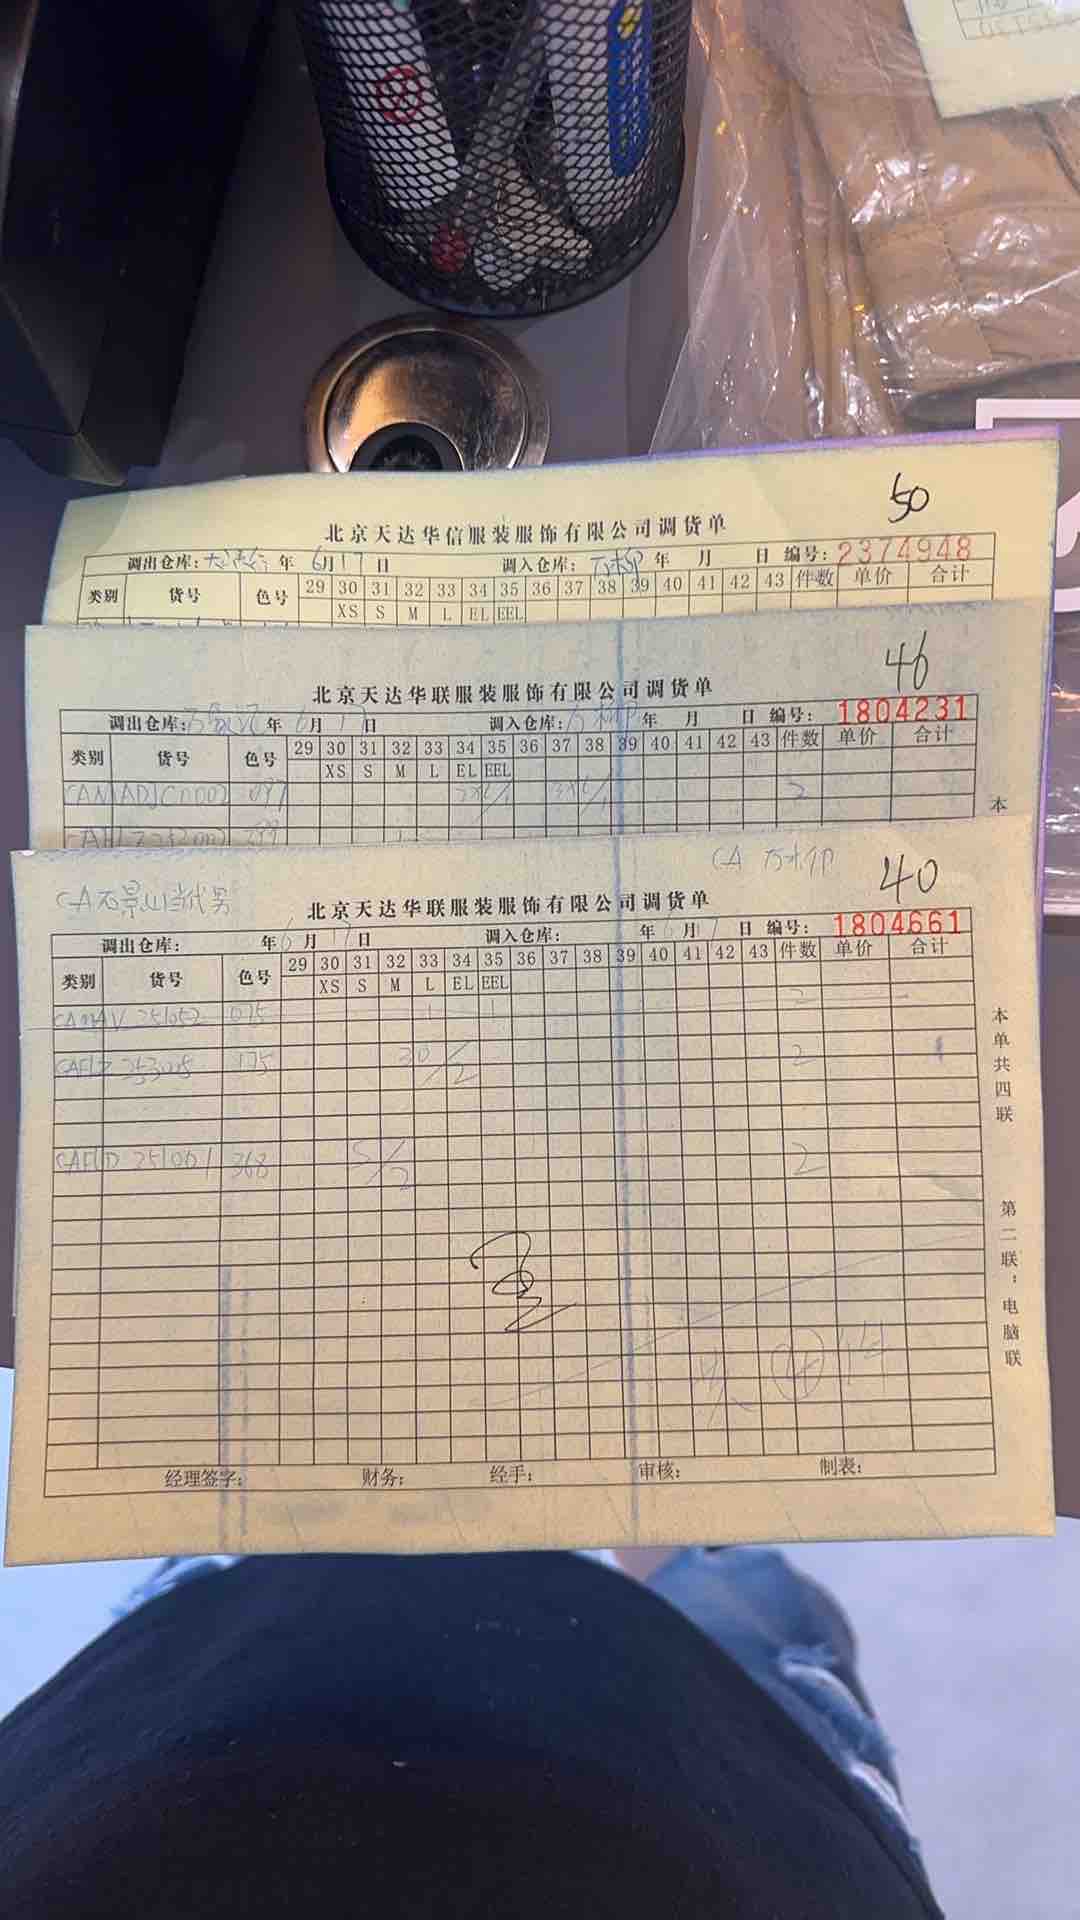 50
北京天达华信服装服饰有限公司调货单
调出仓库: 年 6月17日 调入仓库: 万柳 年 月 日 编号: 2374948
类别 货号 色号 29 30 31 32 33 34 35 36 37 38 39 40 41 42 43 件数 单价 合计
XS S M L EL EEL
46
北京天达华联服装服饰有限公司调货单
调出仓库: 年 6月17日 调入仓库: 万柳 年 月 日 编号: 1804231
类别 货号 色号 29 30 31 32 33 34 35 36 37 38 39 40 41 42 43 件数 单价 合计
XS S M L EL EEL
2
本
CA石景山当代男 CA 万柳 40
北京天达华联服装服饰有限公司调货单
调出仓库: 年6月17日 调入仓库: 年6月17日 编号: 1804661
类别 货号 色号 29 30 31 32 33 34 35 36 37 38 39 40 41 42 43 件数 单价 合计
XS S M L EL EEL
251052 075 1 1 2
253005 175 30/2 2
251001 368 S/2 2
共 4 件
经理签字: 财务: 经手: 审核: 制表:
本单共四联
第二联:电脑联